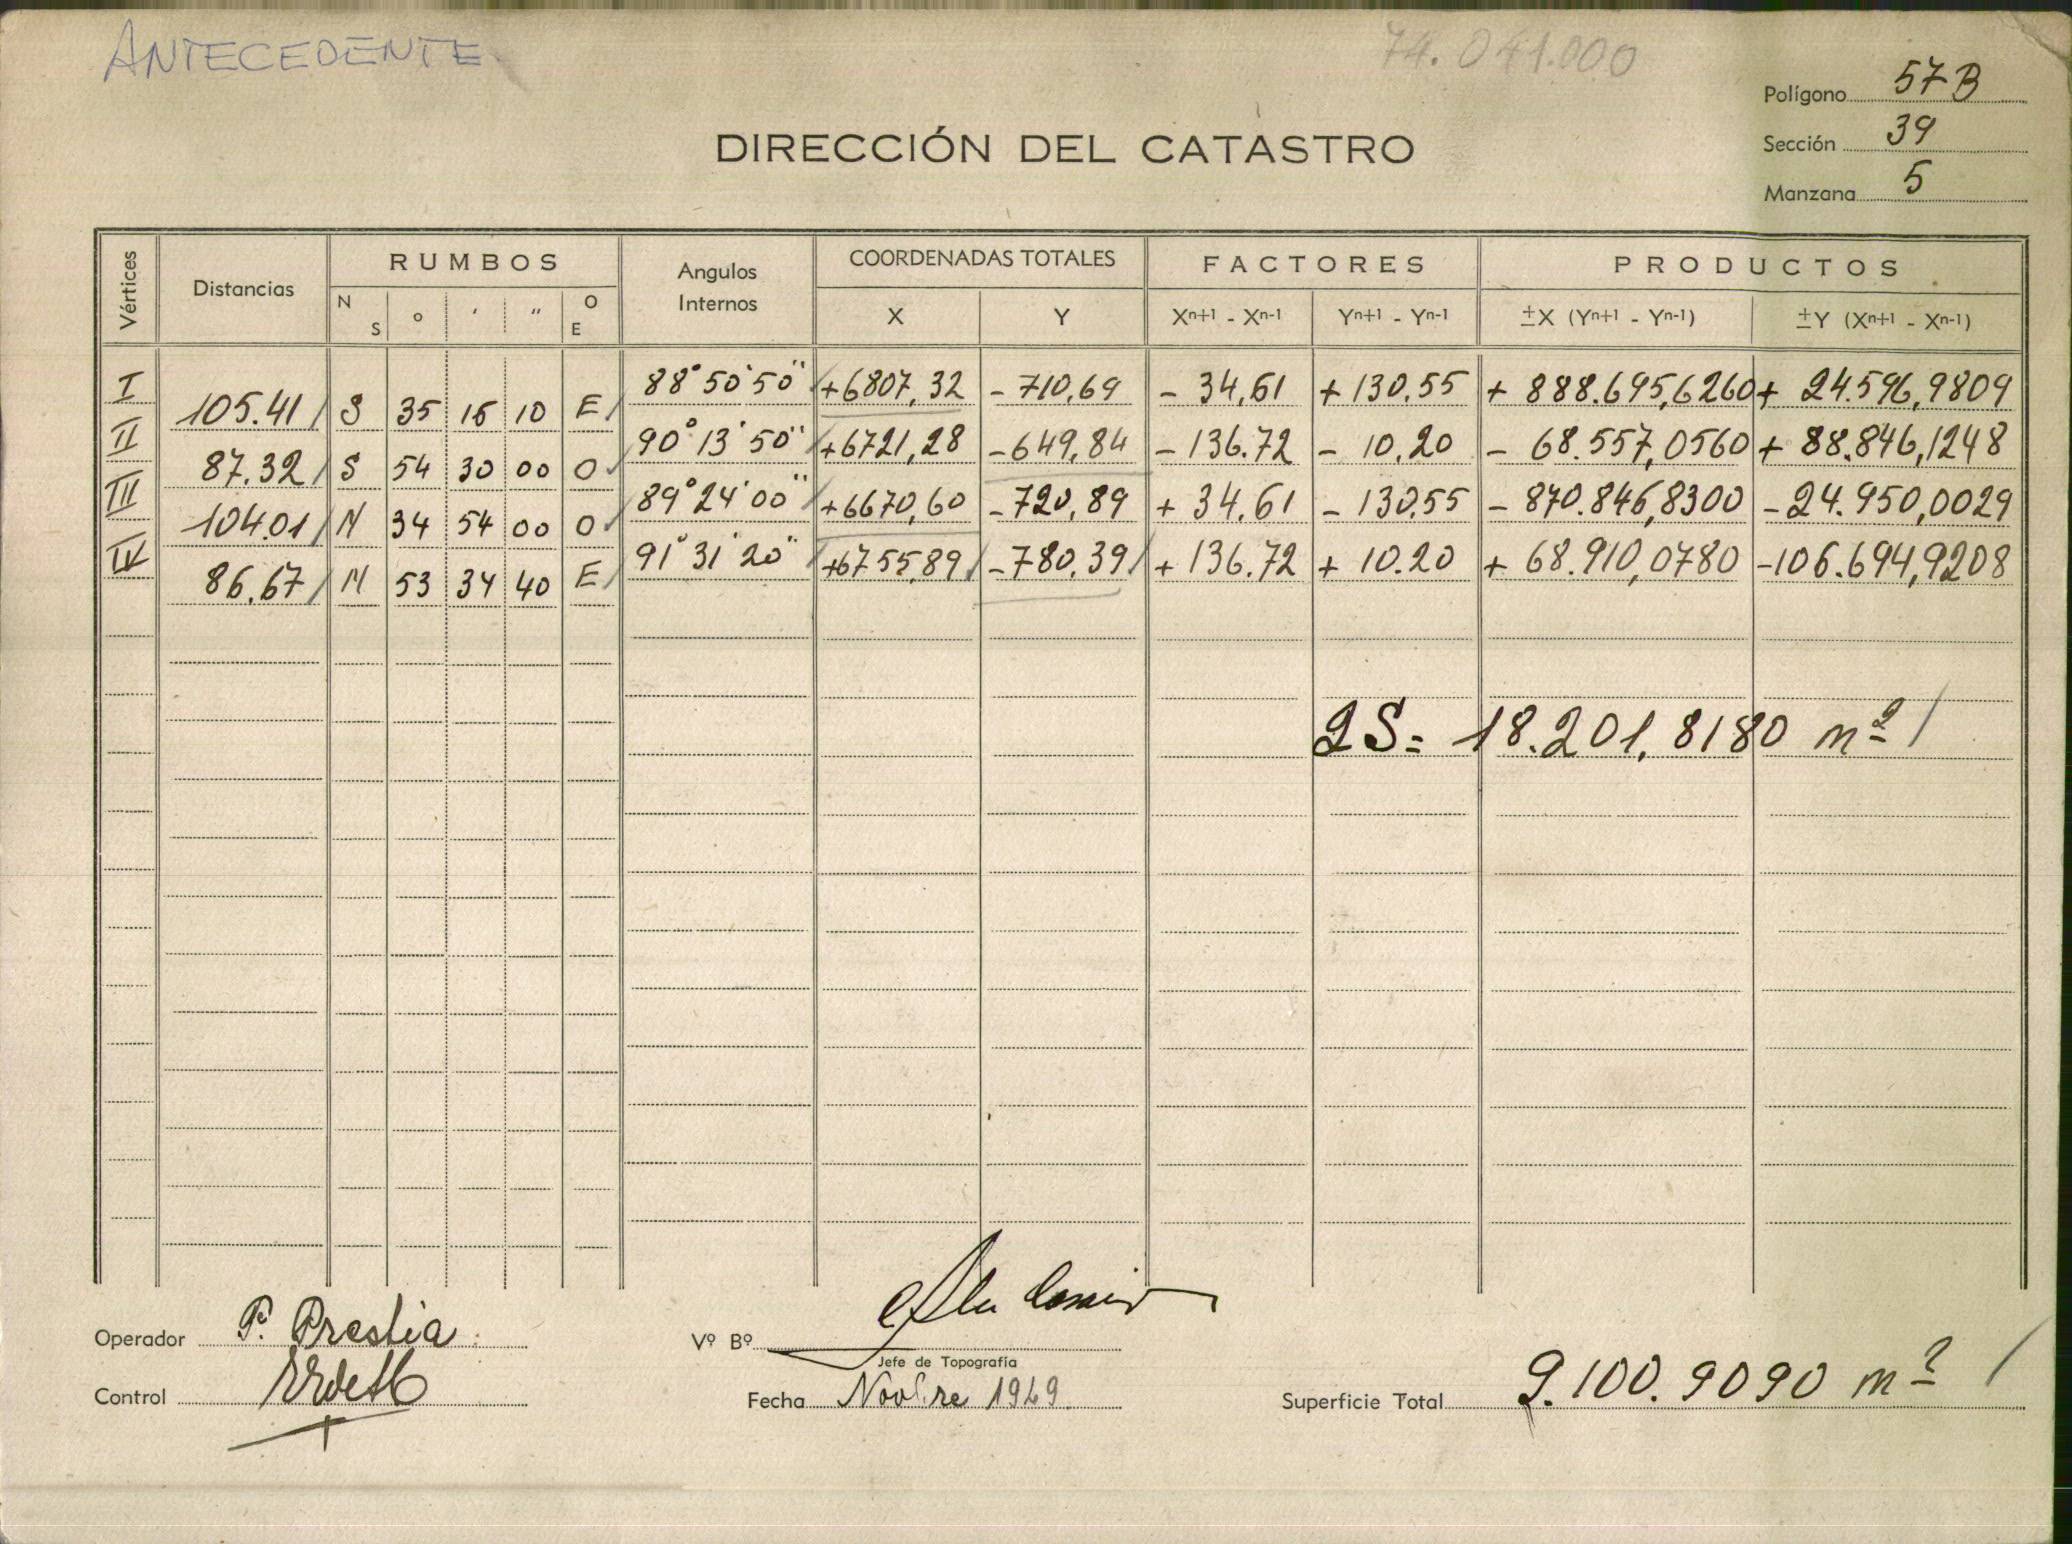 ANTECEDENTE
74.041.000
Polígono 57B
Sección 39
Manzana 5
DIRECCIÓN DEL CATASTRO
Vértices Distancias RUMBOS Angulos Internos COORDENADAS TOTALES FACTORES PRODUCTOS
N S o ʹ ʺ O E X Y Xn+1 - Xn-1 Yn+1 - Yn-1 ±X (Yn+1 - Yn-1) ±Y (Xn+1 - Xn-1)
I 88°50'50" +6807,32 -710,69 -34,61 +130.55 +888.695,6260 +24.596,9809
105.41 S 35 15 10 E
II 90°13'50" +6721,28 -649,84 -136.72 -10.20 -68.557,0560 +88.846,1248
87.32 S 54 30 00 O
III 89°24'00" +6670,60 -720,89 +34.61 -130.55 -870.846,8300 -24.950,0029
104.01 N 34 54 00 O
IV 91°31'20" +6755,89 -780,39 +136.72 +10.20 +68.910,0780 -106.694,9208
86.67 N 53 34 40 E
2S= 18.201,8180 m²
Operador P. Prestia
Vº Bº
Jefe de Topografía
Control
Fecha Novbre 1949.
Superficie Total 9.100.9090 m²